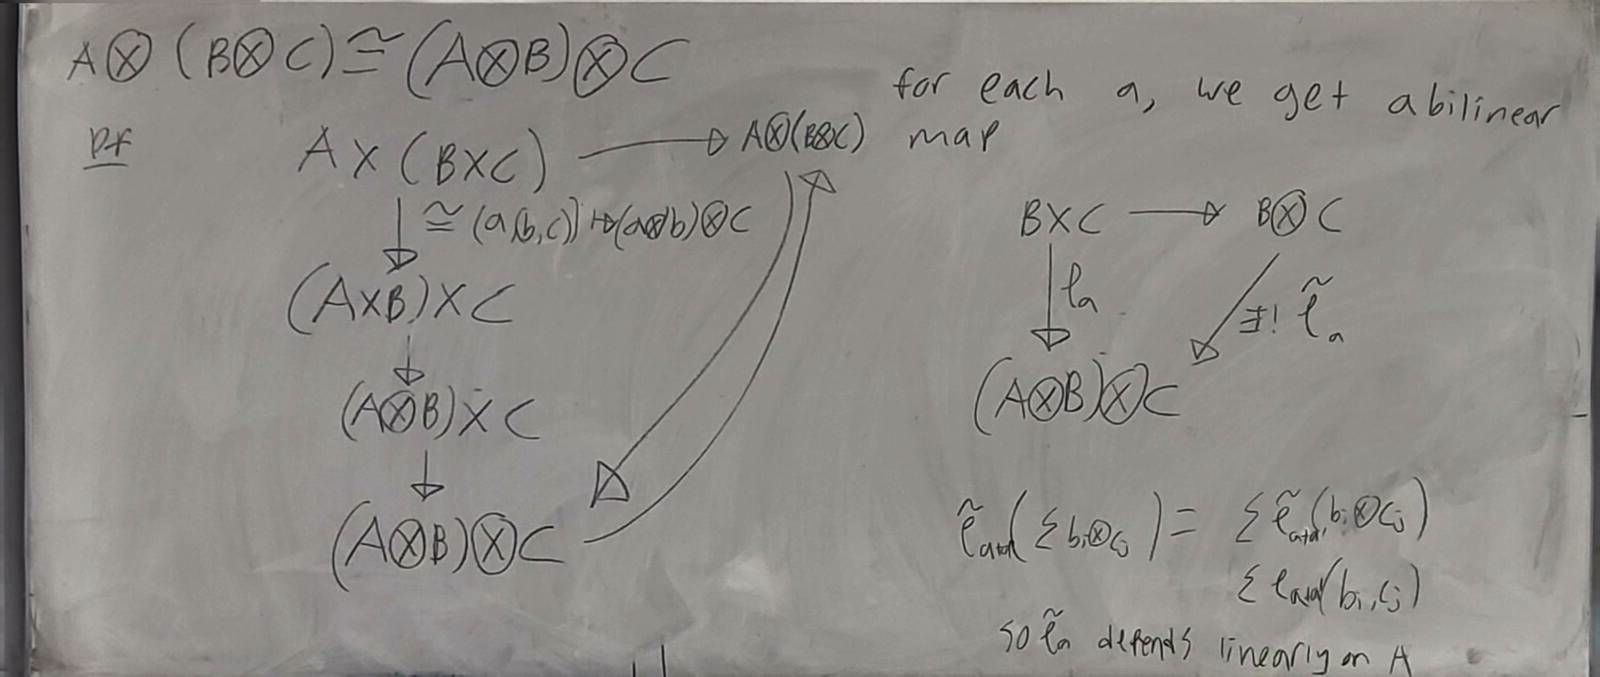 A⊗(B⊗C)≅(A⊗B)⊗C
Pf
A×(B×C) → A⊗(B⊗C)
≅ (a,(b,c)) ↦ (a⊗b)⊗C
(A×B)×C
(A⊗B)×C
(A⊗B)⊗C
for each a, we get a bilinear
map
B×C → B⊗C
ℓₐ
∃! ℓ̃ₐ
(A⊗B)⊗C
ℓ̃ₐ₊ₐ'(Σ bᵢ⊗cⱼ) = Σ ℓ̃ₐ₊ₐ'(bᵢ⊗cⱼ)
Σ ℓₐ₊ₐ'(bᵢ,cⱼ)
so ℓ̃ₐ depends linearly on A